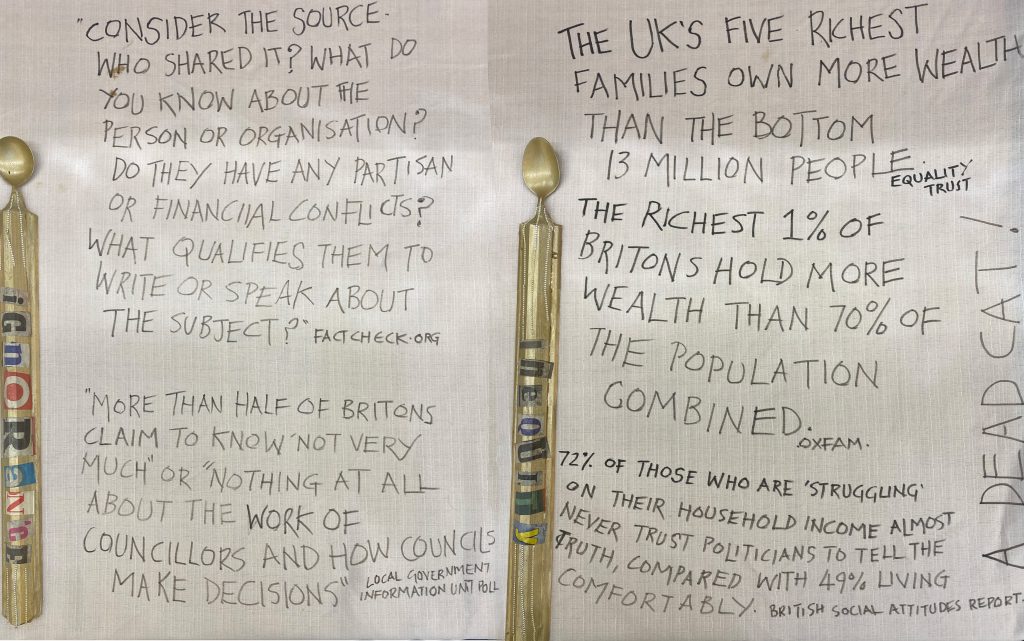 "CONSIDER THE SOURCE.
WHO SHARED IT? WHAT DO
YOU KNOW ABOUT THE
PERSON OR ORGANISATION?
DO THEY HAVE ANY PARTISAN
OR FINANCIIAL CONFLICTS?
WHAT QUALIFIES THEM TO
WRITE OR SPEAK ABOUT
THE SUBJECT?" FACTCHECK.ORG
iGnORaN'ce
"MORE THAN HALF OF BRITONS
CLAIM TO KNOW "NOT VERY
MUCH" OR "NOTHING AT ALL
ABOUT THE WORK OF
COUNCILLORS AND HOW COUNCILS
MAKE DECISIONS"
LOCAL GOVERNMENT
INFORMATION UNIT POLL
THE UK'S FIVE RICHEST
FAMILIES OWN MORE WEALTH
THAN THE BOTTOM
13 MILLION PEOPLE.
EQUALITY
TRUST
THE RICHEST 1% OF
BRITONS HOLD MORE
WEALTH THAN 70% OF
THE POPULATION
COMBINED.
OXFAM.
IneqUiTy
72% OF THOSE WHO ARE 'STRUGGLING'
ON THEIR HOUSEHOLD INCOME ALMOST
NEVER TRUST POLITICIANS TO TELL THE
TRUTH, COMPARED WITH 49% LIVING
COMFORTABLY. BRITISH SOCIAL ATTITUDES REPORT.
A DEAD CAT!